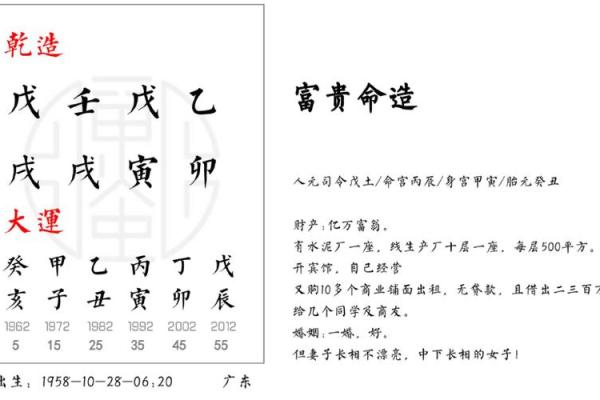 乾造
戊 壬 戊 乙
戌 戌 寅 卯
大運
癸 甲 乙 丙 丁 戊
亥 子 丑 寅 卯 辰
1962 1972 1982 1992 2002 2012
5 15 25 35 45 55
出生：1958-10-28-06:20 广东
富貴命造
人元司令戊土/命宫丙辰/身宫甲寅/胎元癸丑
财产：亿万富翁。
有水泥厂一座，线生产厂十层一座，每层500平方。
开宾馆，自己经营
又购10多个商业铺面出租，无贷款，且借出二三百万
给几个同学及商友。
婚姻：一婚，好。
但妻子长相不漂亮，中下长相的女子！